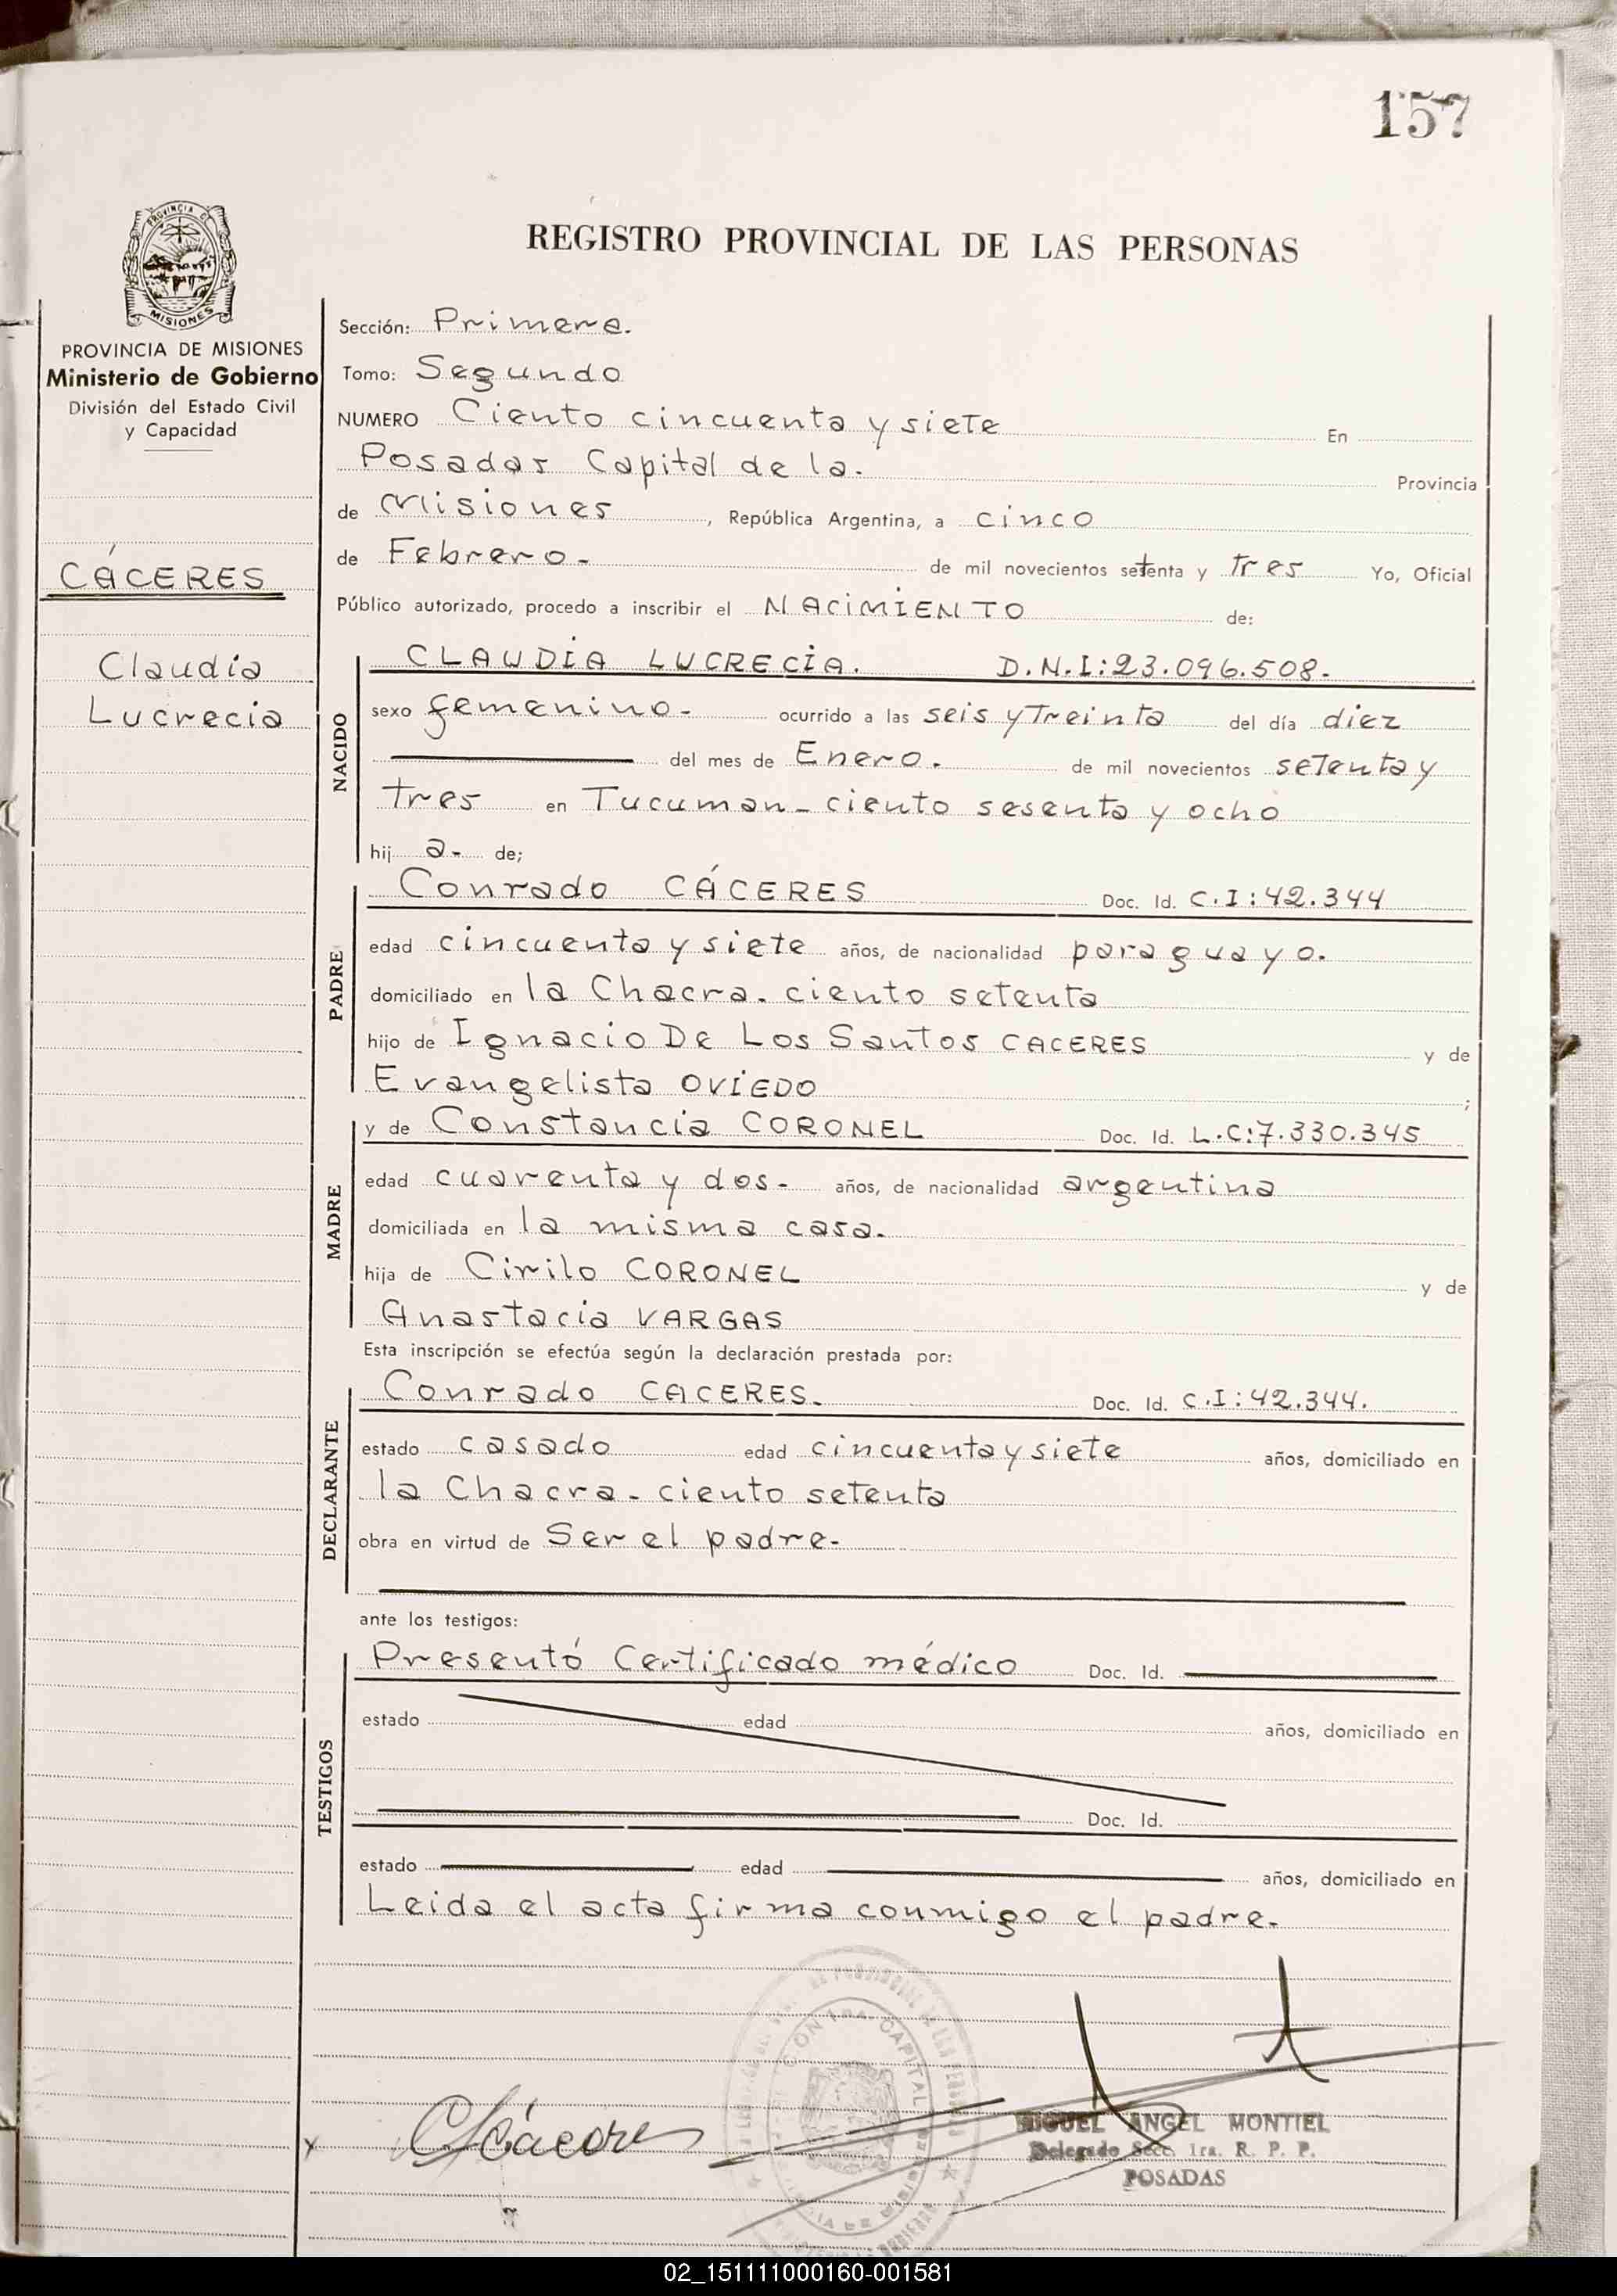 157
PROVINCIA DE
MISIONES
PROVINCIA DE MISIONES
Ministerio de Gobierno
División del Estado Civil
y Capacidad
CÁCERES
Claudia
Lucrecia
REGISTRO PROVINCIAL DE LAS PERSONAS
Sección: Primera.
Tomo: Segundo
NUMERO Ciento cincuenta y siete En
Posadas Capital de la. Provincia
de Misiones, República Argentina, a cinco
de Febrero.- de mil novecientos setenta y tres Yo, Oficial
Público autorizado, procedo a inscribir el NACIMIENTO de:
NACIDO
CLAUDIA LUCRECIA. D.N.I:23.096.508.-
sexo femenino.- ocurrido a las seis y treinta del día diez
del mes de Enero. de mil novecientos setenta y
tres en Tucuman - ciento sesenta y ocho
hij a.- de;
PADRE
Conrado CÁCERES Doc. Id. C.I:42.344
edad cincuenta y siete años, de nacionalidad paraguayo.
domiciliado en la Chacra - ciento setenta
hijo de Ignacio De Los Santos CACERES y de
Evangelista OVIEDO ;
MADRE
y de Constancia CORONEL Doc. Id. L.C:7.330.345
edad cuarenta y dos.- años, de nacionalidad argentina
domiciliada en la misma casa.
hija de Cirilo CORONEL y de
Anastacia VARGAS
Esta inscripción se efectúa según la declaración prestada por:
DECLARANTE
Conrado CACERES. Doc. Id. C.I:42.344.
estado casado edad cincuenta y siete años, domiciliado en
la Chacra - ciento setenta
obra en virtud de Ser el padre.-
ante los testigos:
TESTIGOS
Presentó Certificado médico Doc. Id.
estado edad años, domiciliado en
Doc. Id.
estado edad años, domiciliado en
Leida el acta firma conmigo el padre.-
x CCáceres
CAPITAL
MIGUEL ANGEL MONTIEL
Delegado Secc. 1ra. R. P. P.
POSADAS
02_151111000160-001581